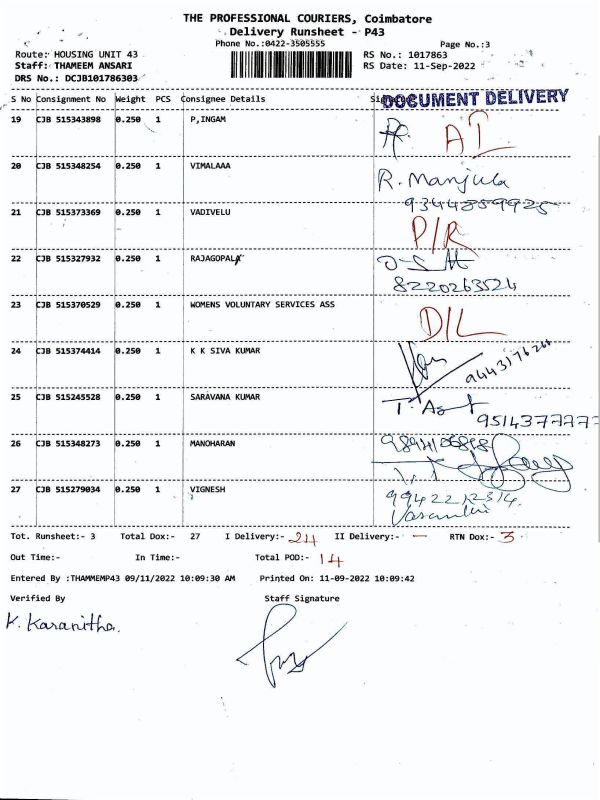 THE PROFESSIONAL COURIERS, Coimbatore
Delivery Runsheet - P43
Phone No.:0422-3505555 Page No.:3
Route: HOUSING UNIT 43 RS No.: 1017863
Staff: THAMEEM ANSARI RS Date: 11-Sep-2022
DRS No.: DCJB101786303
DOCUMENT DELIVERY
S No Consignment No Weight PCS Consignee Details
19 CJB 515343898 0.250 1 P,INGAM
20 CJB 515348254 0.250 1 VIMALAAA R. Manjula
9344859925
21 CJB 515373369 0.250 1 VADIVELU P/R
22 CJB 515327932 0.250 1 RAJAGOPAL
8220263524
23 CJB 515370529 0.250 1 WOMENS VOLUNTARY SERVICES ASS D/L
24 CJB 515374414 0.250 1 K K SIVA KUMAR
25 CJB 515245528 0.250 1 SARAVANA KUMAR
26 CJB 515348273 0.250 1 MANOHARAN
27 CJB 515279034 0.250 1 VIGNESH
Tot. Runsheet:- 3 Total Dox:- 27 I Delivery:- 24 II Delivery:- — RTN Dox:- 3
Out Time:- In Time:- Total POD:- 14
Entered By :THAMMEMP43 09/11/2022 10:09:30 AM Printed On: 11-09-2022 10:09:42
Verified By Staff Signature
K. Karanitha.